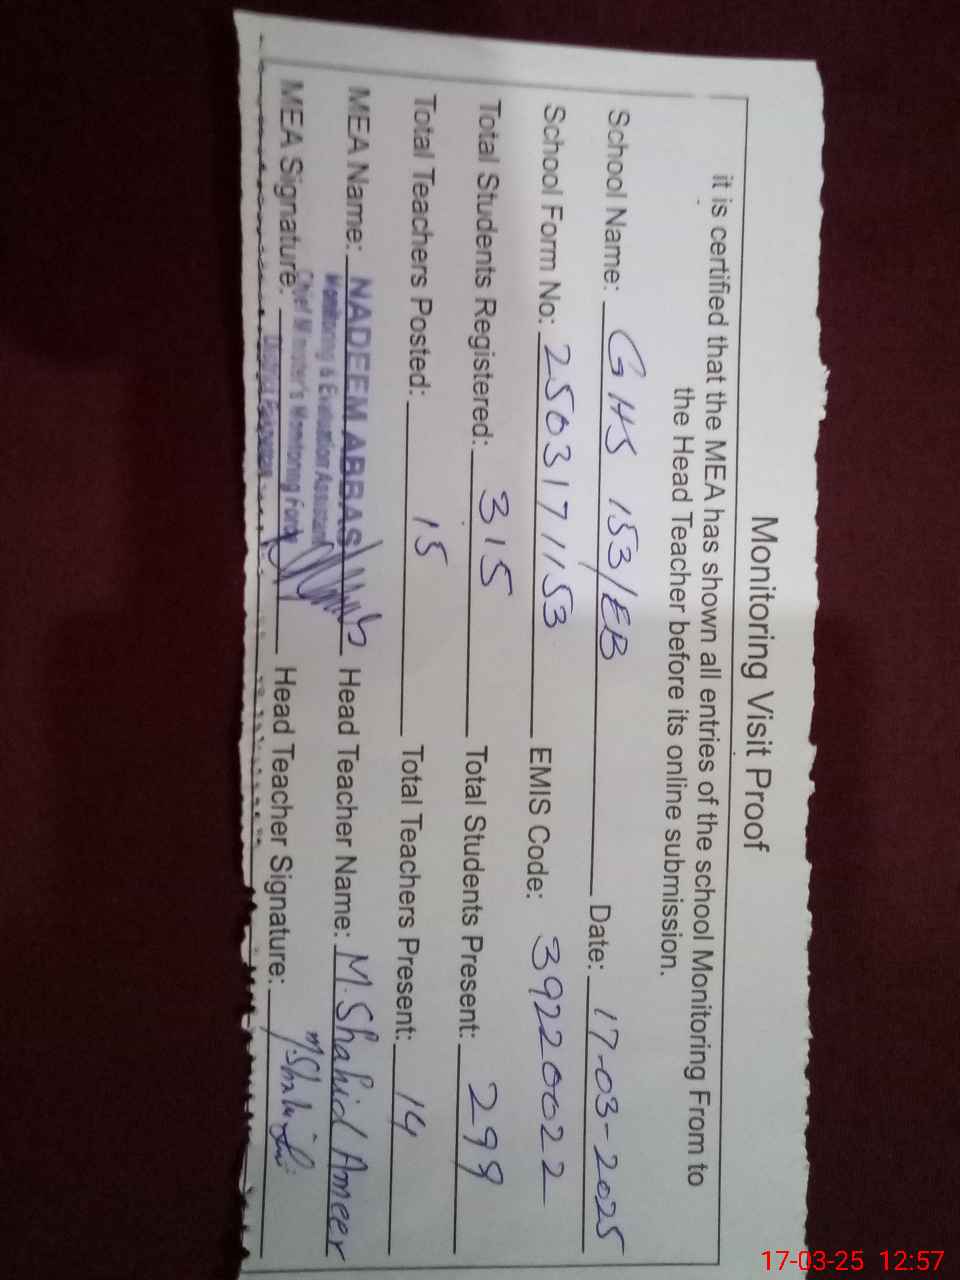 Monitoring Visit Proof
it is certified that the MEA has shown all entries of the school Monitoring From to
the Head Teacher before its online submission.
School Name: GHS 153/EB Date: 17-03-2025
School Form No: 2503171153 EMIS Code: 39220022
Total Students Registered: 315 Total Students Present: 299
Total Teachers Posted: 15 Total Teachers Present: 14
MEA Name: NADEEM ABBAS Head Teacher Name: M. Shahid Ameer
Monitoring & Evaluation Assistant
MEA Signature: Chief Minister's Monitoring Force Head Teacher Signature: M. Shahid
District Pakpattan
17-03-25 12:57